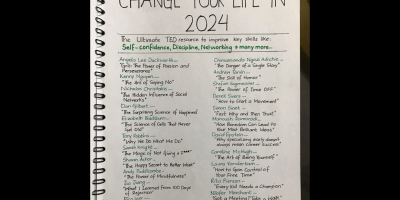 CHANGE YOUR LIFE IN
2024
The Ultimate TED resource to improve key skills like:
Self-confidence, Discipline, Networking + many more...
Angela Lee Duckworth...
"Grit: The Power of Passion and
Perseverance"
Kenny Nguyen...
"The Art of Saying No"
Nicholas Christakis...
"The Hidden Influence of Social
Networks"
Dan Gilbert...
"The Surprising Science of Happiness"
Elizabeth Blackburn...
"The Science of Cells That Never
Get Old"
Tony Robbins...
"Why We Do What We Do"
Sarah Knight...
"The Magic of Not Giving a f***"
Shawn Achor...
"The Happy Secret to Better Work"
Andy Puddicombe...
"The Power of Mindfulness"
Jia Jiang...
"What I Learned from 100 Days
of Rejection"
Chimamanda Ngozi Adichie...
"The Danger of a Single Story"
Andrew Tarvin...
"The Skill of Humor"
Stefan Sagmeister...
"The Power of Time Off"
Derek Sivers...
"How to Start a Movement"
Simon Sinek...
"First Why and Then Trust"
Manoush Zomorodi...
"How Boredom Can Lead to
Your Most Brilliant Ideas"
David Epstein...
"Why specializing early doesn't
always mean career success"
Caroline McHugh...
"The Art of Being Yourself"
Laura Vanderkam...
"How to Gain Control of
Your Free Time"
Rita Pierson...
"Every Kid Needs a Champion"
Nilofer Merchant...